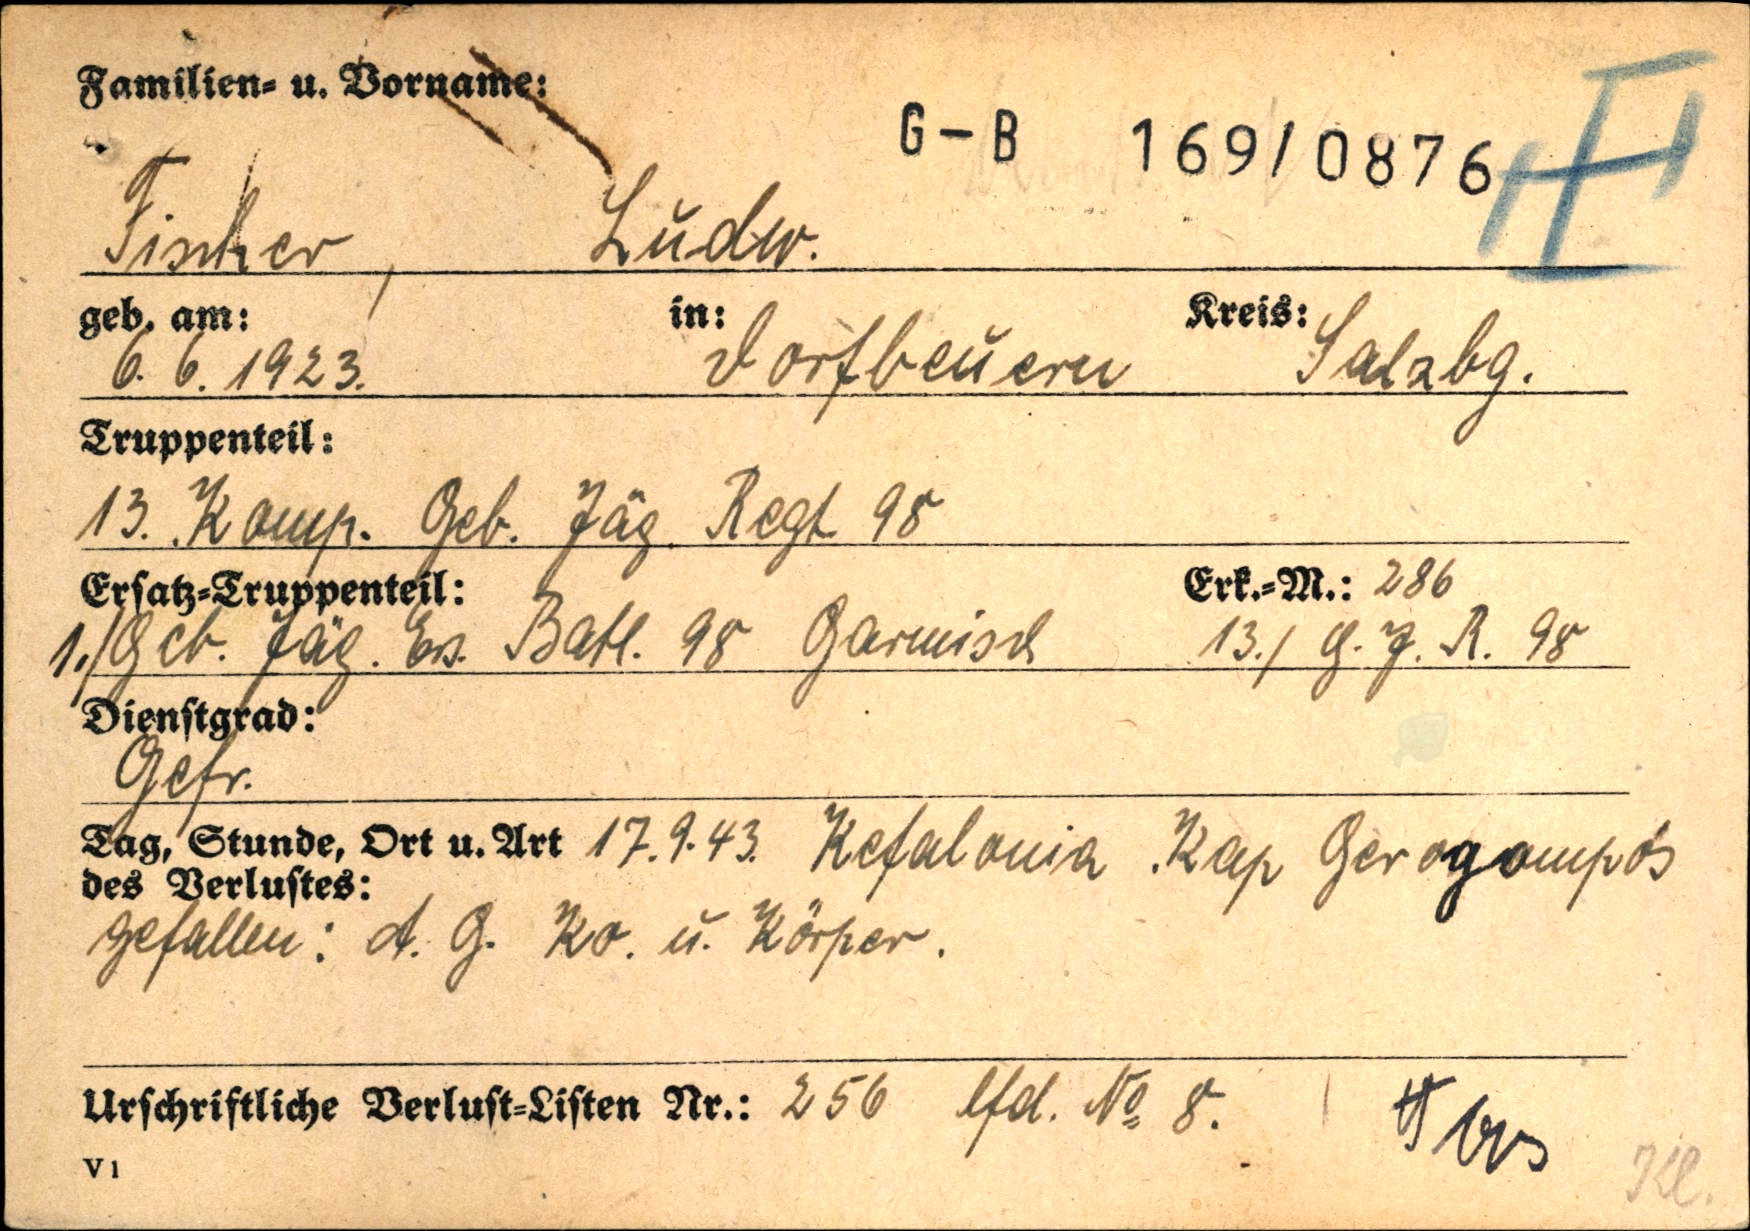 Familien- u. Vorname:
G-B 169/0876
Fischer, Ludw.
geb. am: in: Kreis:
6. 6. 1923. Dorfbeuern Salzbg.
Truppenteil:
13. Komp. Geb. Jäg. Regt. 98
Ersatz-Truppenteil: Erk.-M.: 286
1./Geb. Jäg. Ers. Batl. 98 Garmisch 13./ G. J. R. 98
Dienstgrad:
Gefr.
Tag, Stunde, Ort u. Art 17.9.43. Kefalonia Kap Gerogompos
des Verlustes:
gefallen: A. G. Ko. u. Körper.
Urschriftliche Verlust-Listen Nr.: 256 lfd. No 8.
V 1
Kl.